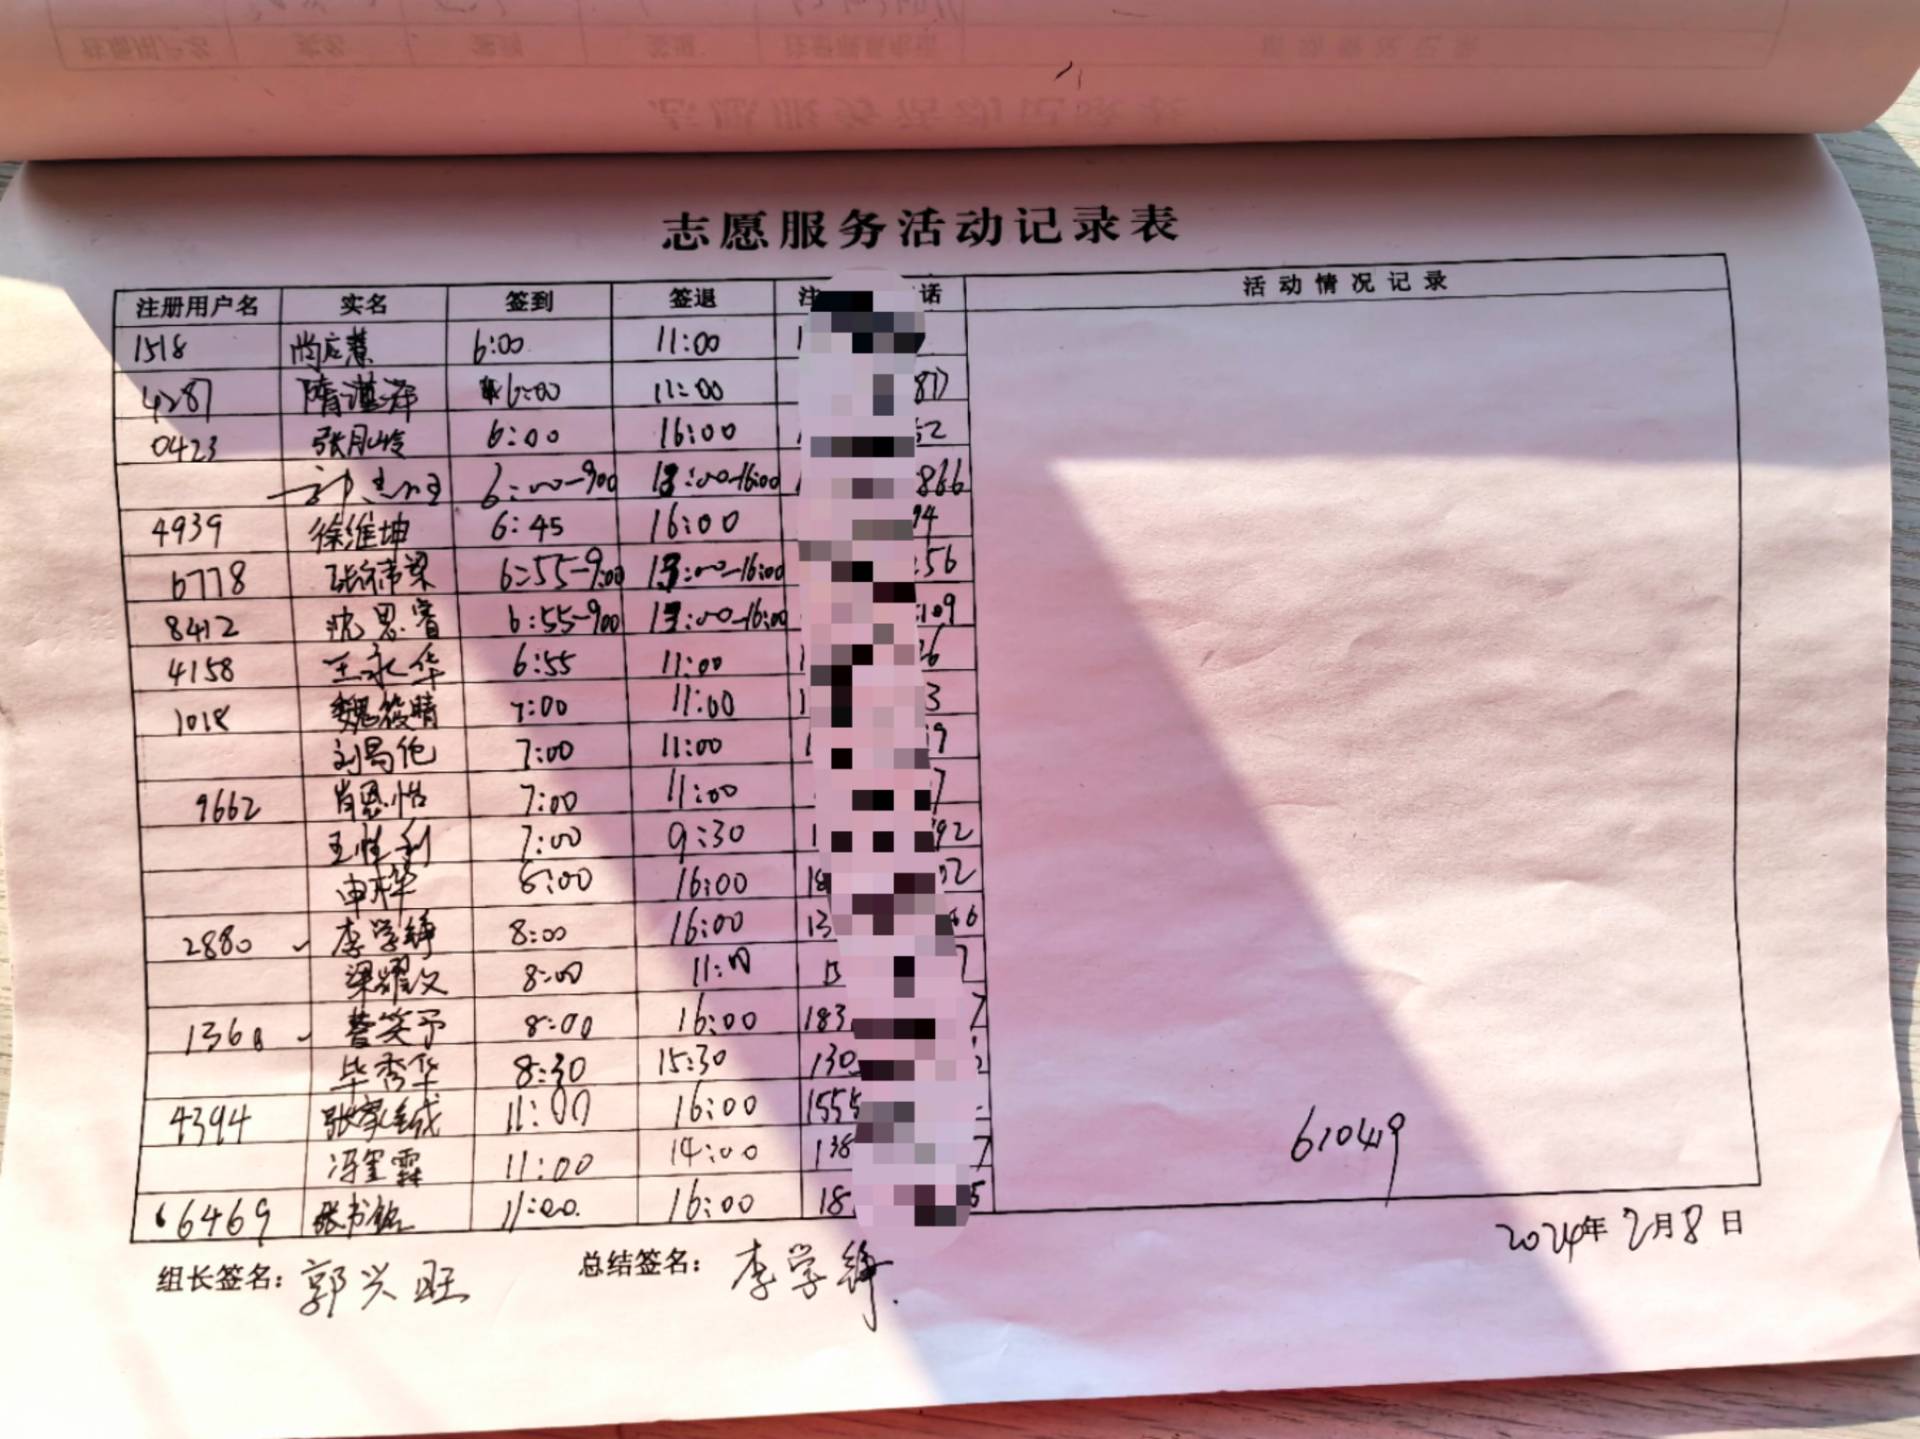 志愿服务活动记录表
注册用户名 实名 签到 签退 注 话 活动情况记录
1518 尚应慧 6:00 11:00 1
4287 隋谌泽 6:00 11:00 877
0423 张月岭 6:00 16:00 52
6:00-9:00 13:00-16:00 1 866
4939 徐维坤 6:45 16:00 94
6778 张祎梁 6:55-9:00 13:00-16:00 56
8412 沈思睿 6:55-9:00 13:00-16:00 109
4158 王永华 6:55 11:00 1 26
1018 魏筱晴 7:00 11:00 1 3
刘昌伦 7:00 11:00 1 9
9662 肖恩怡 7:00 11:00 7
王恒利 7:00 9:30 1 92
申桦 6:00 16:00 18 02
2880 ✓ 李学铮 8:00 16:00 13 66
梁耀文 8:00 11:00 13 7
1360 ✓ 蔡笑予 8:00 16:00 183 7
毕秀华 8:30 15:30 130 2
4394 张家铖 11:00 16:00 1555
冯奎霖 11:00 14:00 138 7
6469 张书铭 11:00. 16:00 18 5
61049
2024年2月8日
组长签名: 郭兴旺 总结签名: 李学铮.